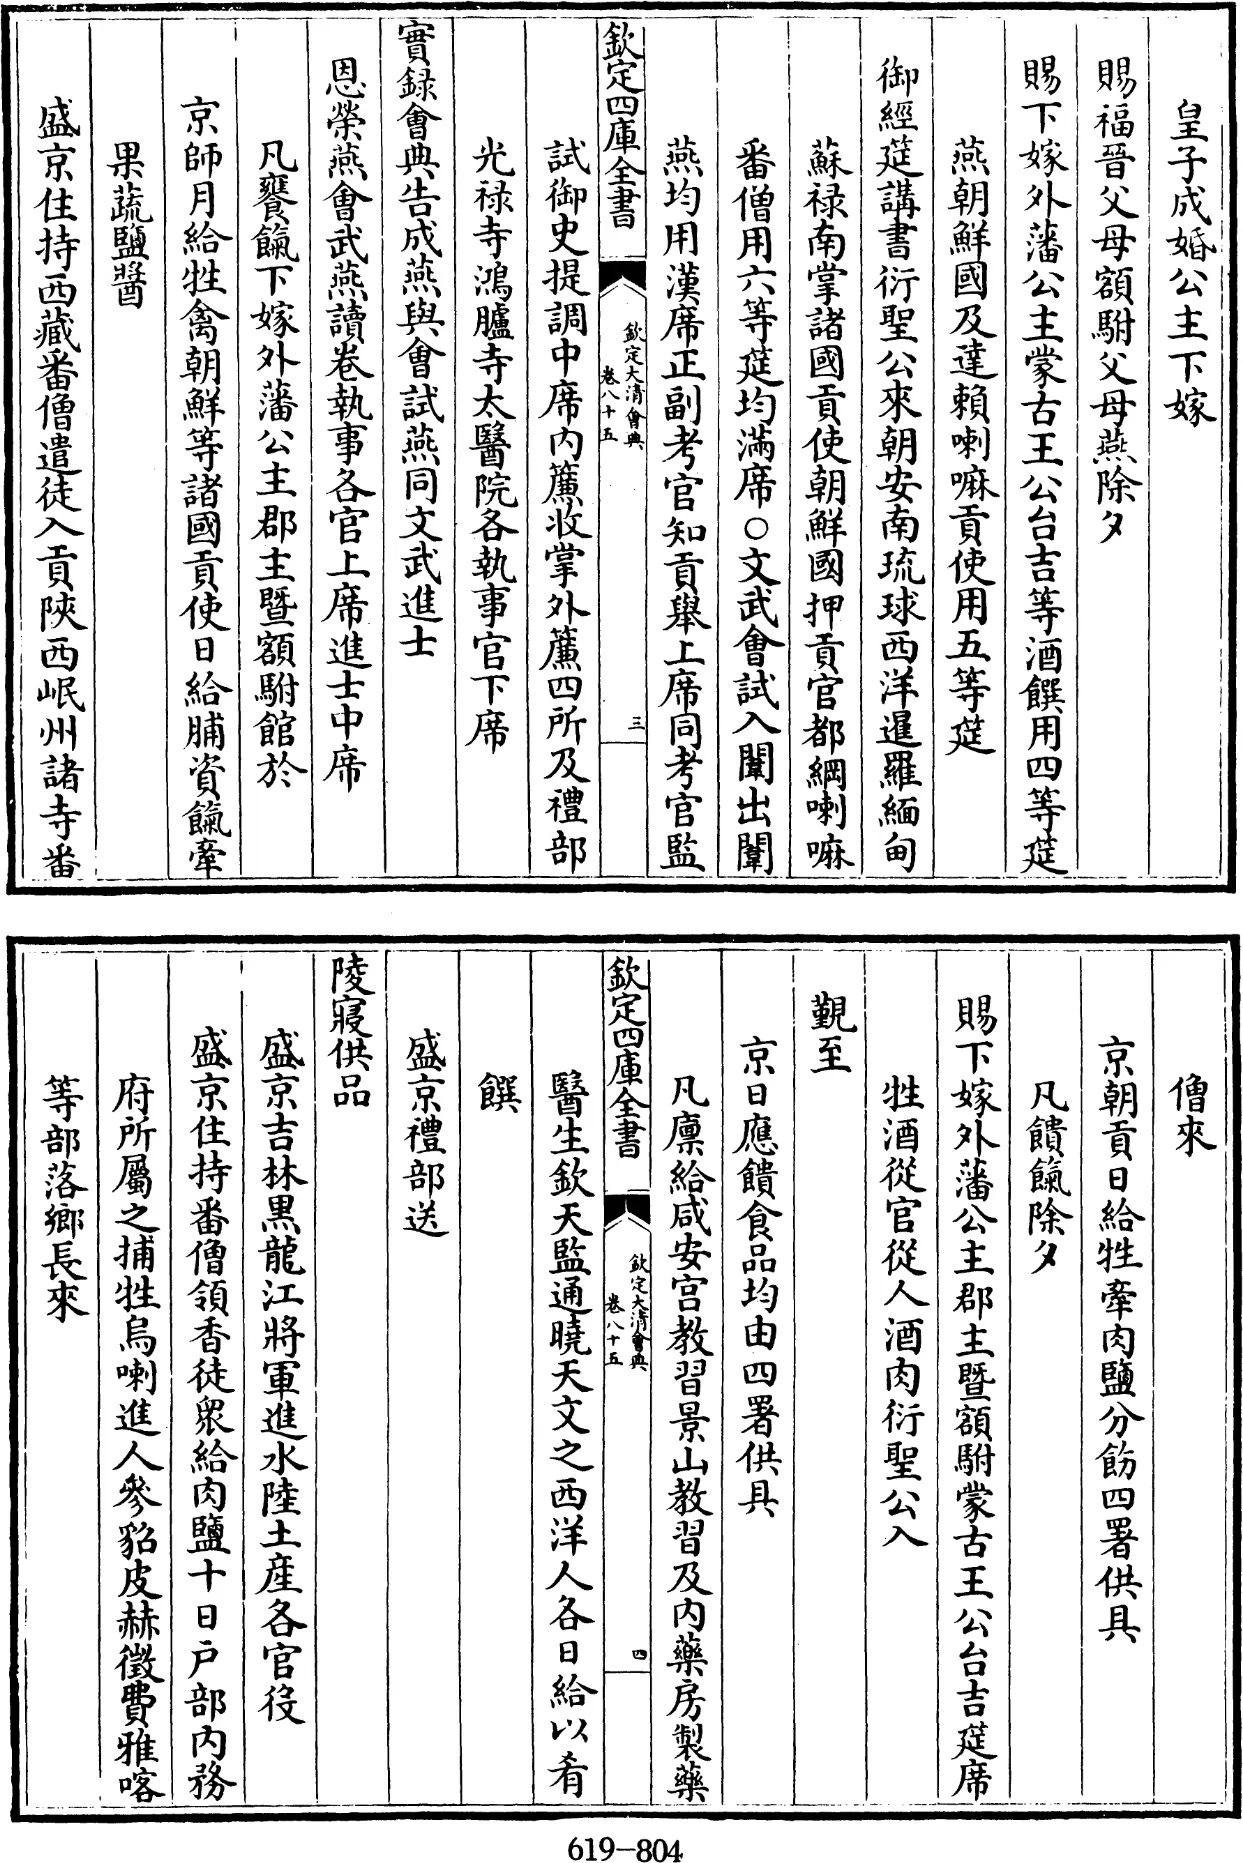 皇子成婚公主下嫁
賜福晉父母額駙父母燕除夕
賜下嫁外藩公主蒙古王公台吉等酒饌用四等筵
燕朝鮮國及達賴喇嘛貢使用五等筵
御經筵講書衍聖公來朝安南琉球西洋暹羅緬甸
蘇祿南掌諸國貢使朝鮮國押貢官都綱喇嘛
番僧用六等筵均滿席○文武會試入闈出闈
燕均用漢席正副考官知貢舉上席同考官監
欽定四庫全書
欽定大清會典
卷八十五
三
試御史提調中席内簾收掌外簾四所及禮部
光禄寺鴻臚寺太醫院各執事官下席
實録會典告成燕與會試燕同文武進士
恩榮燕會武燕讀卷執事各官上席進士中席
凡饔餼下嫁外藩公主郡主暨額駙館於
京師月給牲禽朝鮮等諸國貢使日給脯資餼牽
果蔬鹽醬
盛京住持西藏番僧遣徒入貢陝西岷州諸寺番
僧來
京朝貢日給牲牽肉鹽分飭四署供具
凡饋餼除夕
賜下嫁外藩公主郡主暨額駙蒙古王公台吉筵席
牲酒從官從人酒肉衍聖公入
覲至
京日應饋食品均由四署供具
凡廪給咸安宮教習景山教習及内藥房製藥
欽定四庫全書
欽定大清會典
卷八十五
四
醫生欽天監通曉天文之西洋人各日給以肴
饌
盛京禮部送
陵寢供品
盛京吉林黑龍江將軍進水陸土産各官役
盛京住持番僧領香徒衆給肉鹽十日戸部内務
府所屬之捕牲烏喇進人參貂皮赫徵費雅喀
等部落鄉長來
619-804